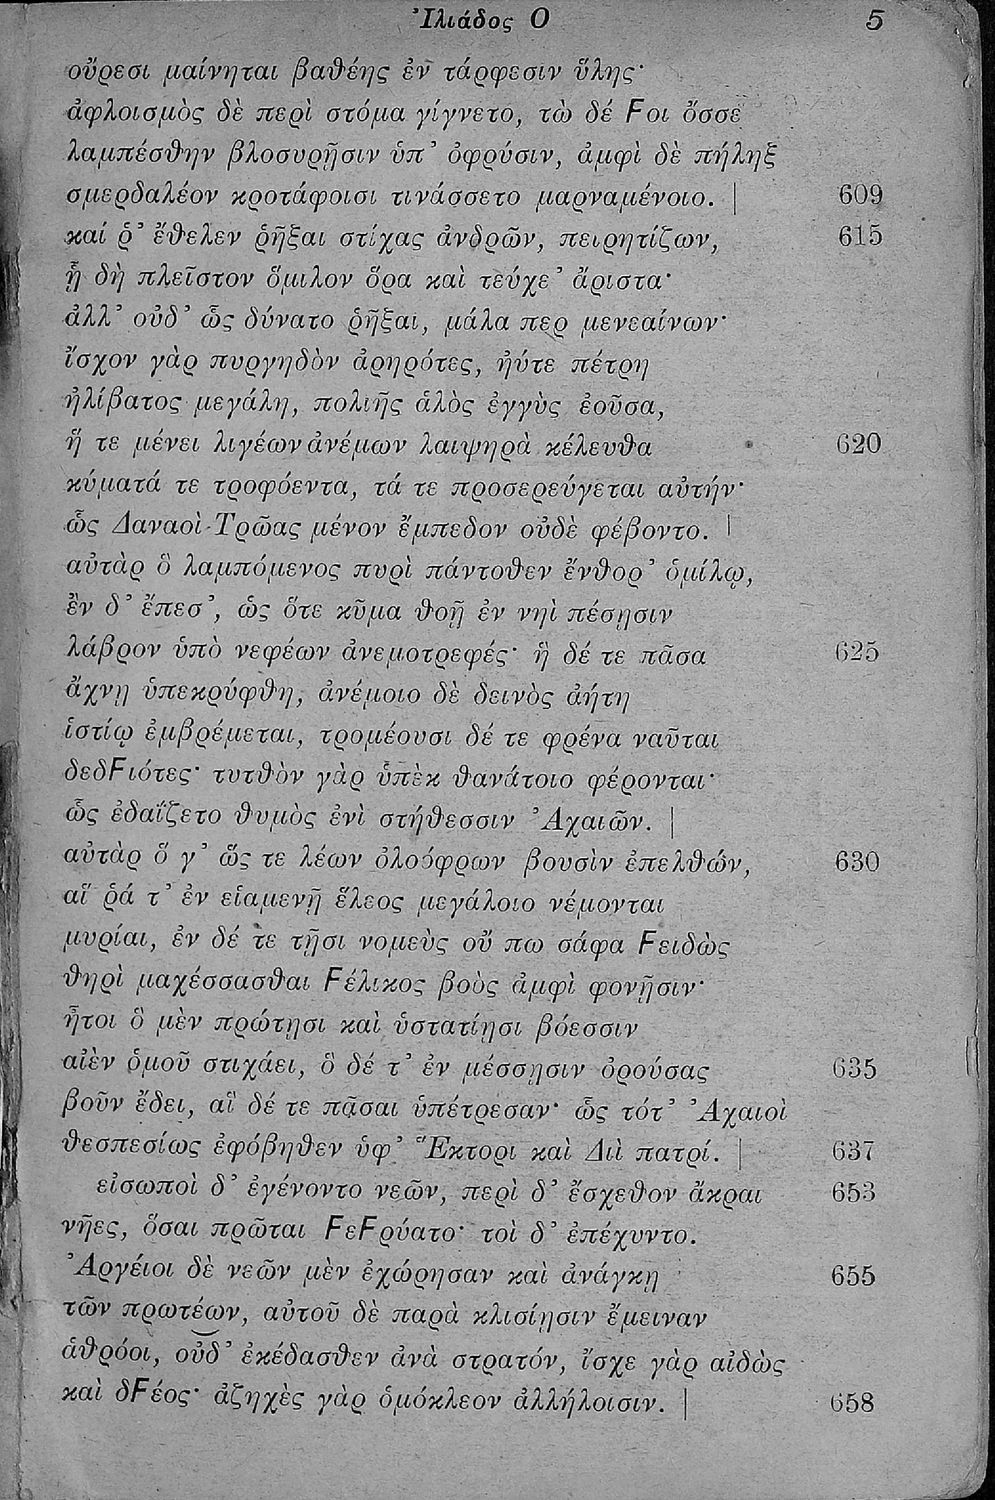 Ἰλιάδος Ο 5
οὔρεσι μαίνηται βαθέης ἐν τάρφεσιν ὕλης·
ἀφλοισμὸς δὲ περὶ στόμα γίγνετο, τὼ δέ Ϝοι ὄσσε
λαμπέσθην βλοσυρῇσιν ὑπ’ ὀφρύσιν, ἀμφὶ δὲ πήληξ
σμερδαλέον κροτάφοισι τινάσσετο μαρναμένοιο. | 609
καί ῥ’ ἔθελεν ῥῆξαι στίχας ἀνδρῶν, πειρητίζων, 615
ᾗ δὴ πλεῖστον ὅμιλον ὅρα καὶ τεύχε’ ἄριστα·
ἀλλ’ οὐδ’ ὧς δύνατο ῥῆξαι, μάλα περ μενεαίνων·
ἴσχον γὰρ πυργηδὸν ἀρηρότες, ἠύτε πέτρη
ἠλίβατος μεγάλη, πολιῆς ἁλὸς ἐγγὺς ἐοῦσα,
ἥ τε μένει λιγέων ἀνέμων λαιψηρὰ κέλευθα 620
κύματά τε τροφόεντα, τά τε προσερεύγεται αὐτήν·
ὧς Δαναοὶ Τρῶας μένον ἔμπεδον οὐδὲ φέβοντο. |
αὐτὰρ ὃ λαμπόμενος πυρὶ πάντοθεν ἔνθορ’ ὁμίλῳ,
ἐν δ’ ἔπεσ’, ὡς ὅτε κῦμα θοῇ ἐν νηὶ πέσησιν
λάβρον ὑπὸ νεφέων ἀνεμοτρεφές· ἣ δέ τε πᾶσα 625
ἄχνῃ ὑπεκρύφθη, ἀνέμοιο δὲ δεινὸς ἀήτη
ἱστίῳ ἐμβρέμεται, τρομέουσι δέ τε φρένα ναῦται
δεδϜιότες· τυτθὸν γὰρ ὑπὲκ θανάτοιο φέρονται·
ὧς ἐδαΐζετο θυμὸς ἐνὶ στήθεσσιν Ἀχαιῶν. |
αὐτὰρ ὅ γ’ ὥς τε λέων ὀλοόφρων βουσὶν ἐπελθών, 630
αἵ ῥά τ’ ἐν εἱαμενῇ ἕλεος μεγάλοιο νέμονται
μυρίαι, ἐν δέ τε τῇσι νομεὺς οὔ πω σάφα Ϝειδὼς
θηρὶ μαχέσσασθαι Ϝέλικος βοὸς ἀμφὶ φονῇσιν·
ἦτοι ὃ μὲν πρώτῃσι καὶ ὑστατίῃσι βόεσσιν
αἰὲν ὁμοῦ στιχάει, ὃ δέ τ’ ἐν μέσσῃσιν ὀρούσας 635
βοῦν ἔδει, αἳ δέ τε πᾶσαι ὑπέτρεσαν· ὣς τότ’ Ἀχαιοὶ
θεσπεσίως ἐφόβηθεν ὑφ’ Ἕκτορι καὶ Διὶ πατρί. | 637
εἰσωποὶ δ’ ἐγένοντο νεῶν, περὶ δ’ ἔσχεθον ἄκραι 653
νῆες, ὅσαι πρῶται ϜεϜρύατο· τοὶ δ’ ἐπέχυντο.
Ἀργέιοι δὲ νεῶν μὲν ἐχώρησαν καὶ ἀνάγκῃ 655
τῶν πρωτέων, αὐτοῦ δὲ παρὰ κλισίῃσιν ἔμειναν
ἁθρόοι, οὐδ’ ἐκέδασθεν ἀνὰ στρατόν, ἴσχε γὰρ αἰδὼς
καὶ δϜέος· ἀζηχὲς γὰρ ὁμόκλεον ἀλλήλοισιν. | 658